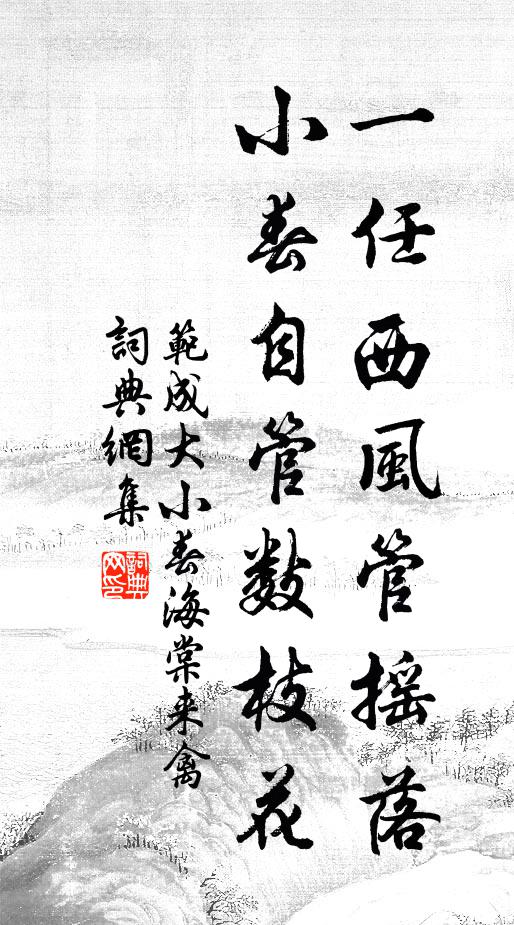 一任西風管摇落
小春自管數枝花
範成大小春海棠来禽
詞典網集
詞典
网印